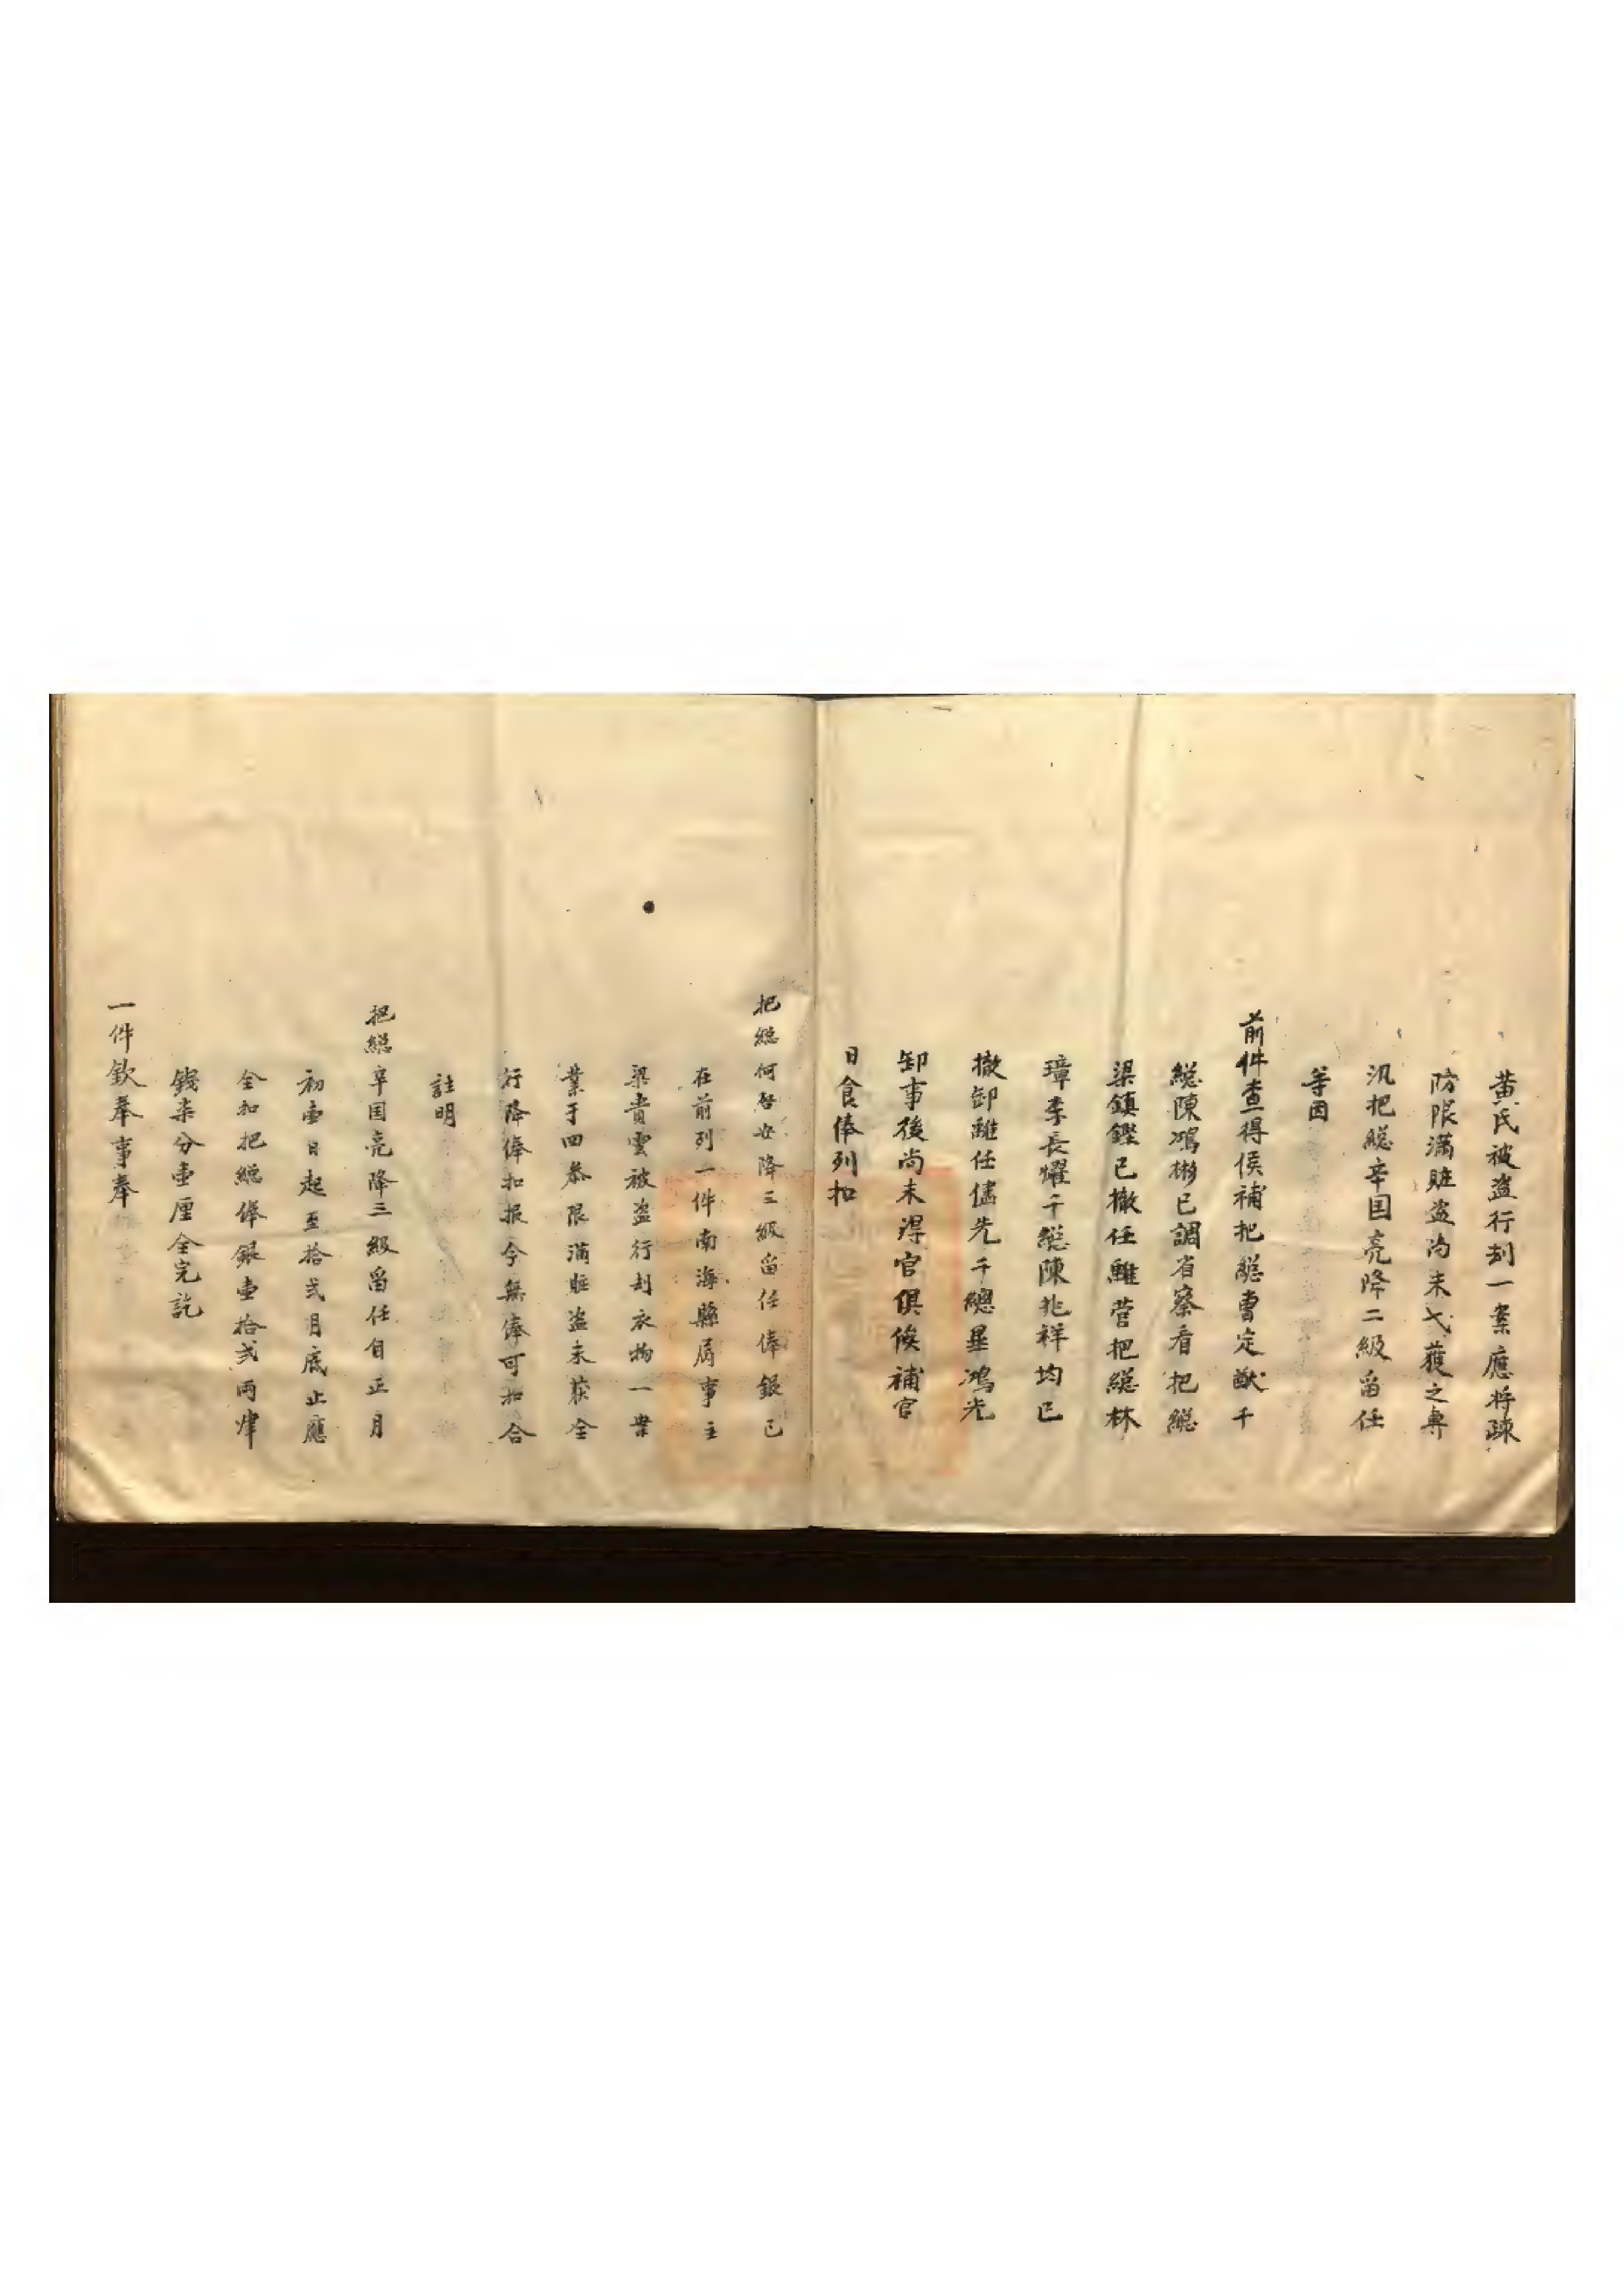 黄氏被盗行刼一案應将疎
防限滿賍盗尚未弋獲之專
汛把緫辛国亮降二級畱任
等因
前件查得候補把緫曹定猷千
緫陳鴻彬已調省察看把緫
梁鎮鏗已撤任離营把緫林
璋李長耀千緫陳兆祥均已
撤卸離任儘先千總畢鴻光
卸事後尚未得官俱俟補官
日食俸列扣
把緫何啓降三級畱任俸銀已
在前列一件南海縣属事主
梁貴雲被盗行刼衣物一案
業于四叅限滿賍盗未获全
行降俸扣报今無俸可扣合
註明
把緫辛国亮降三級畱任自正月
初壹日起至拾弍月底止應
全扣把緫俸銀壹拾弍兩肆
錢柒分壹厘全完訖
一件欽奉事奉